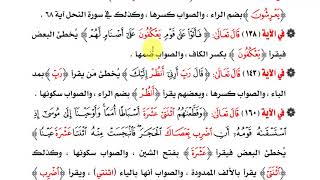 ﴿يَعْرِشُونَ﴾ بضم الراء، والصواب كسرها، وكذلك في سورة النحل آية ٦٨.
في الآية (١٣٨) قَالَ تَعَالَى: ﴿فَأَتَوْا عَلَى قَوْمٍ يَعْكُفُونَ عَلَى أَصْنَامٍ لَهُمْ﴾ يُخطئ البعض
فيقرأ ﴿يَعْكُفُونَ﴾ بكسر الكاف، والصواب ضمها.
في الآية (١٤٣) قَالَ تَعَالَى: ﴿قَالَ رَبِّ أَرِنِي أَنْظُرْ إِلَيْكَ﴾ يُخطئ من يقرأ ﴿رَبِّ﴾ بضم
الباء، والصواب كسرها، وبعضهم يقرأ ﴿أَنْظُرْ﴾ بضم الراء، والصواب سكونها.
في الآية (١٦٠) قَالَ تَعَالَى: ﴿وَقَطَّعْنَاهُمُ اثْنَتَيْ عَشْرَةَ أَسْبَاطًا أُمَمًا وَأَوْحَيْنَا إِلَى مُوسَى إِذِ
اسْتَسْقَاهُ قَوْمُهُ أَنِ اضْرِبْ بِعَصَاكَ الْحَجَرَ فَانْبَجَسَتْ مِنْهُ اثْنَتَا عَشْرَةَ عَيْنًا﴾
يُخطئ البعض فيقرأ ﴿عَشْرَةَ﴾ بفتح الشين، والصواب سكونها، وكذلك
﴿اثْنَتَيْ﴾ يقرأ بالألف الممدودة، والصواب بالياء (اثنتي)، ويقرأ ﴿اضْرِبْ﴾